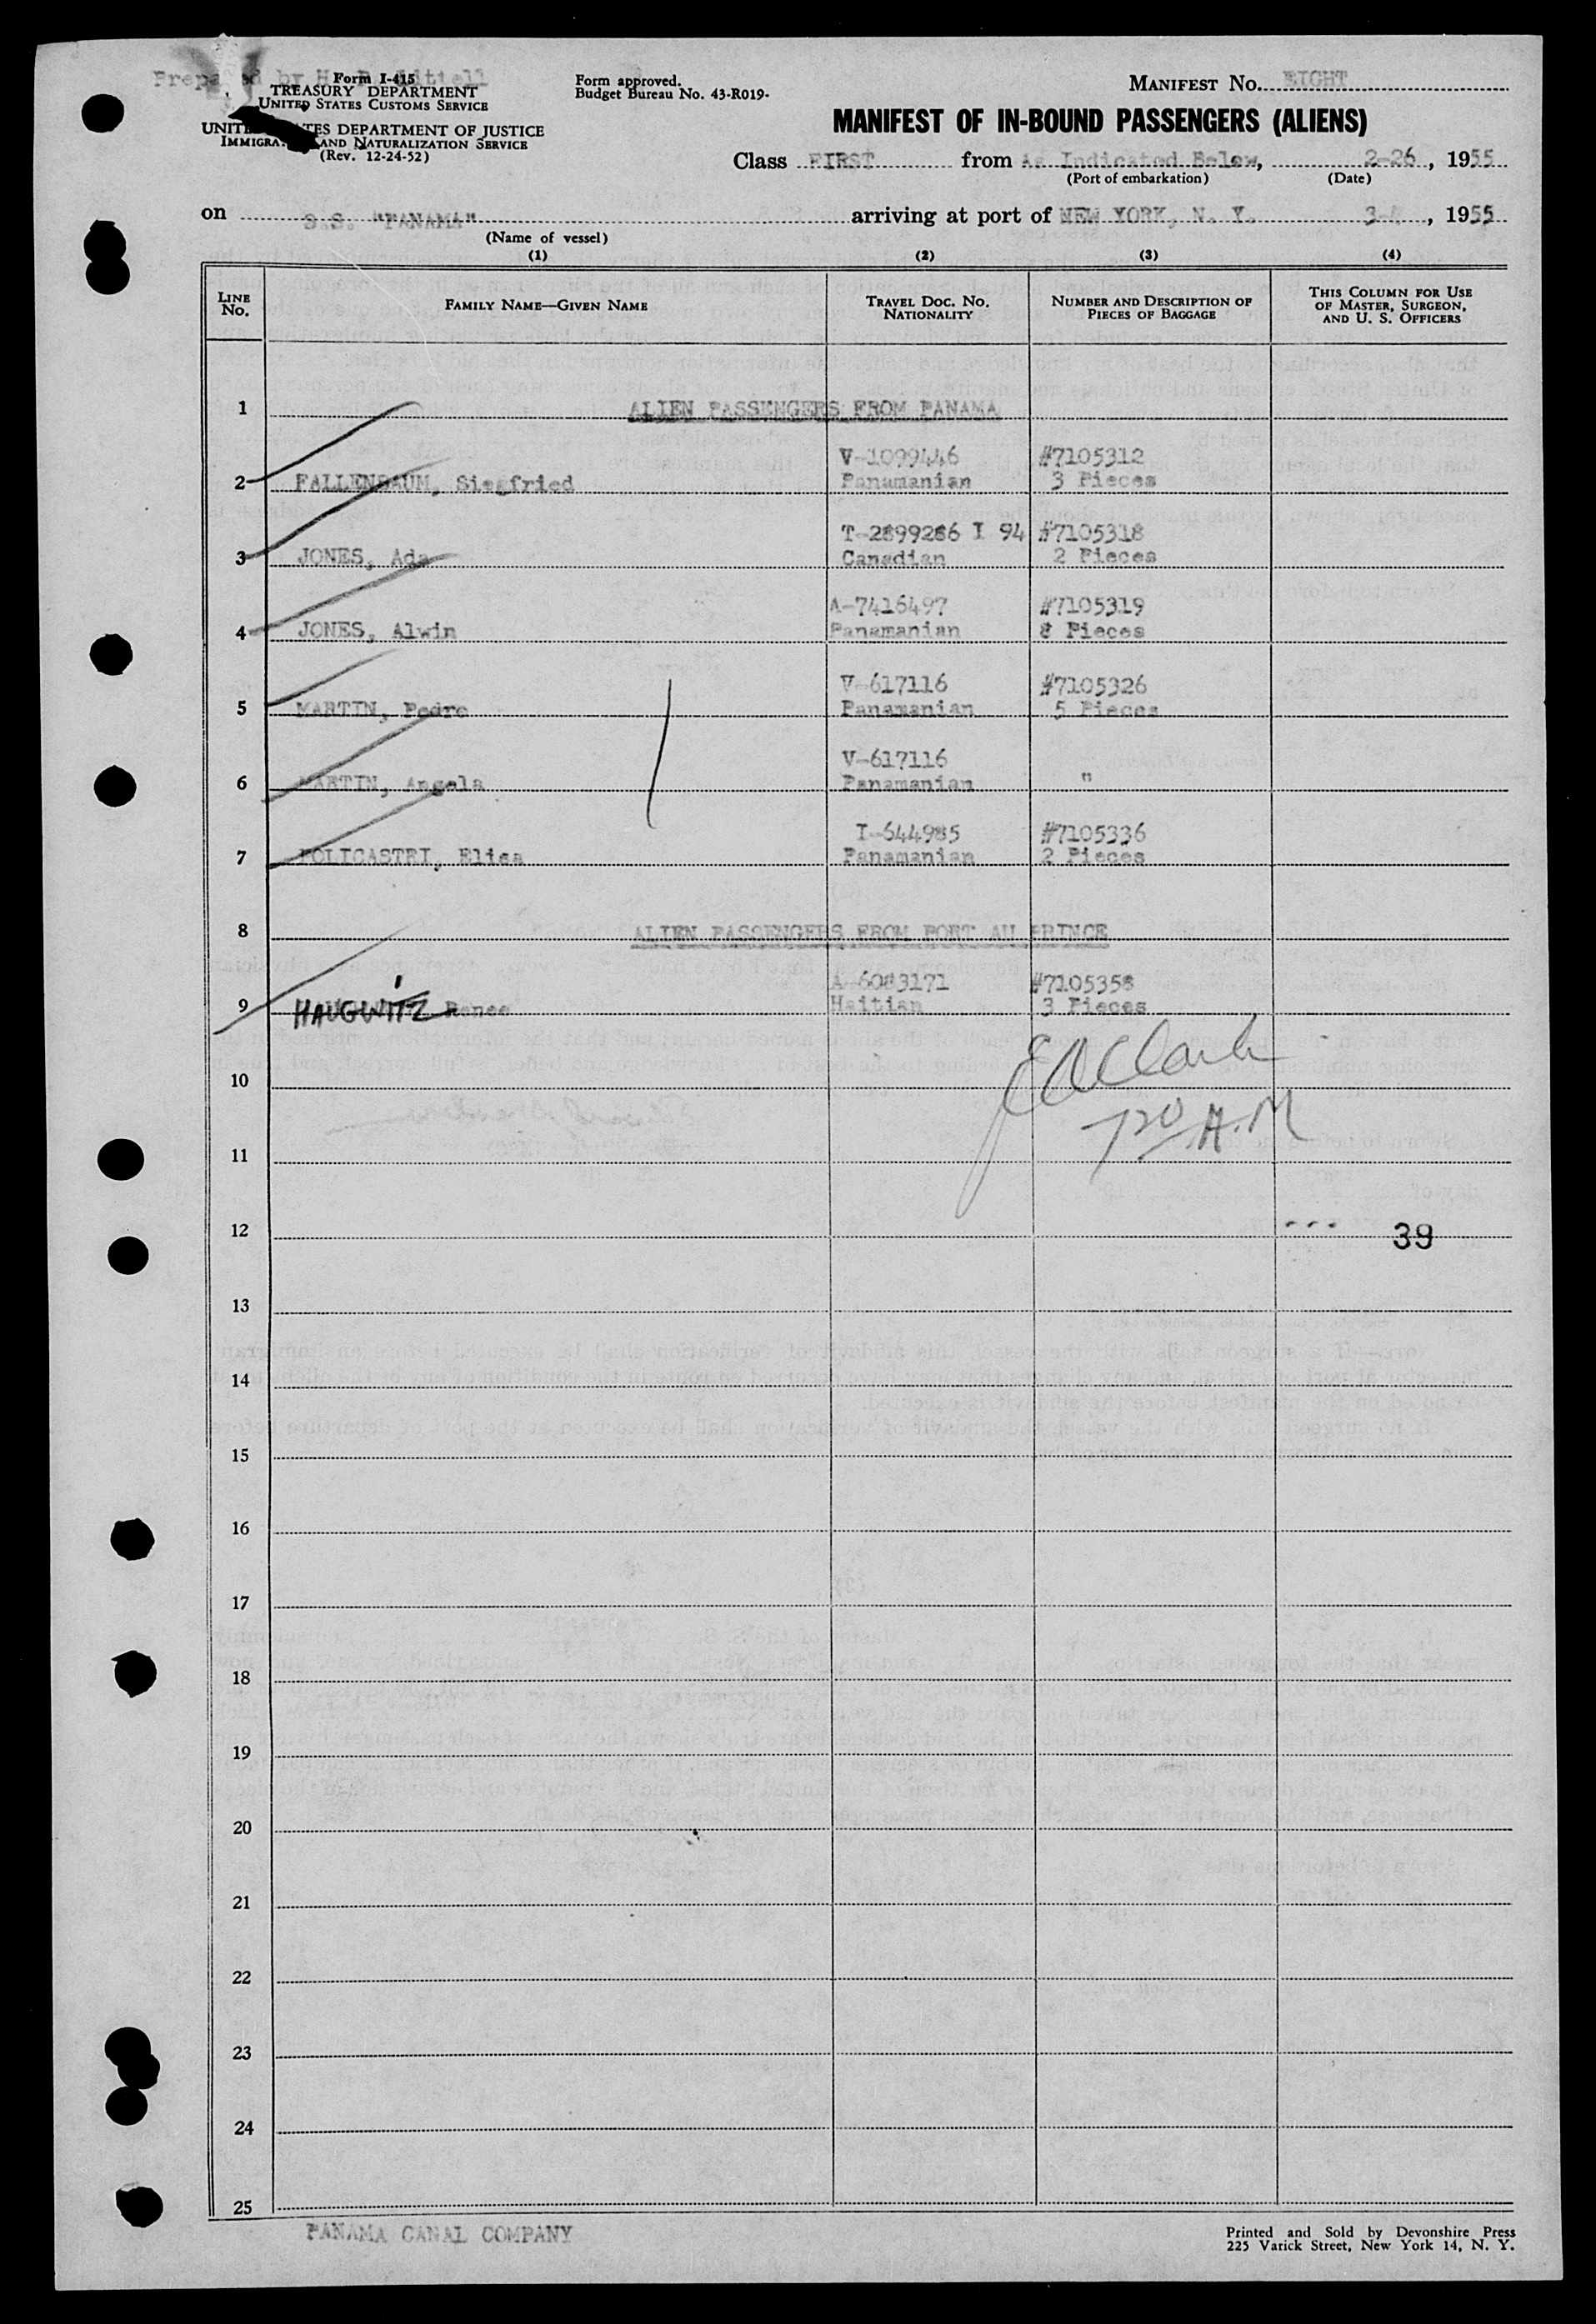 Prepared by H. R. Littell
Form I-415
TREASURY DEPARTMENT
UNITED STATES CUSTOMS SERVICE
UNITED STATES DEPARTMENT OF JUSTICE
IMMIGRATION AND NATURALIZATION SERVICE
(Rev. 12-24-52)
Form approved.
Budget Bureau No. 43-R019-
MANIFEST NO. EIGHT
MANIFEST OF IN-BOUND PASSENGERS (ALIENS)
Class FIRST from As Indicated Below, 2-26, 1955
(Port of embarkation) (Date)
on S.S. "PANAMA" arriving at port of NEW YORK, N. Y. 3-, 1955
(Name of vessel)
(1) (2) (3) (4)
LINE NO. FAMILY NAME—GIVEN NAME TRAVEL DOC. NO. NATIONALITY NUMBER AND DESCRIPTION OF PIECES OF BAGGAGE THIS COLUMN FOR USE OF MASTER, SURGEON, AND U. S. OFFICERS
1 ALIEN PASSENGERS FROM PANAMA
V-1099446 #7105312
2 FALLENBAUM, Siegfried Panamanian 3 Pieces
T-2899286 I 94 #7105318
3 JONES, Ada Canadian 2 Pieces
A-7416497 #7105319
4 JONES, Alwin Panamanian 8 Pieces
V-617116 #7105326
5 MARTIN, Pedro Panamanian 5 Pieces
V-617116
6 MARTIN, Angela Panamanian "
I-644985 #7105336
7 POLICASTRI, Elisa Panamanian 2 Pieces
8 ALIEN PASSENGERS FROM PORT AU PRINCE
A-6083171 #7105358
9 HAUGWITZ Renee Haitian 3 Pieces
EAClark
10
720 A.M
11
12 39
13
14
15
16
17
18
19
20
21
22
23
24
25
PANAMA CANAL COMPANY
Printed and Sold by Devonshire Press
225 Varick Street, New York 14, N. Y.